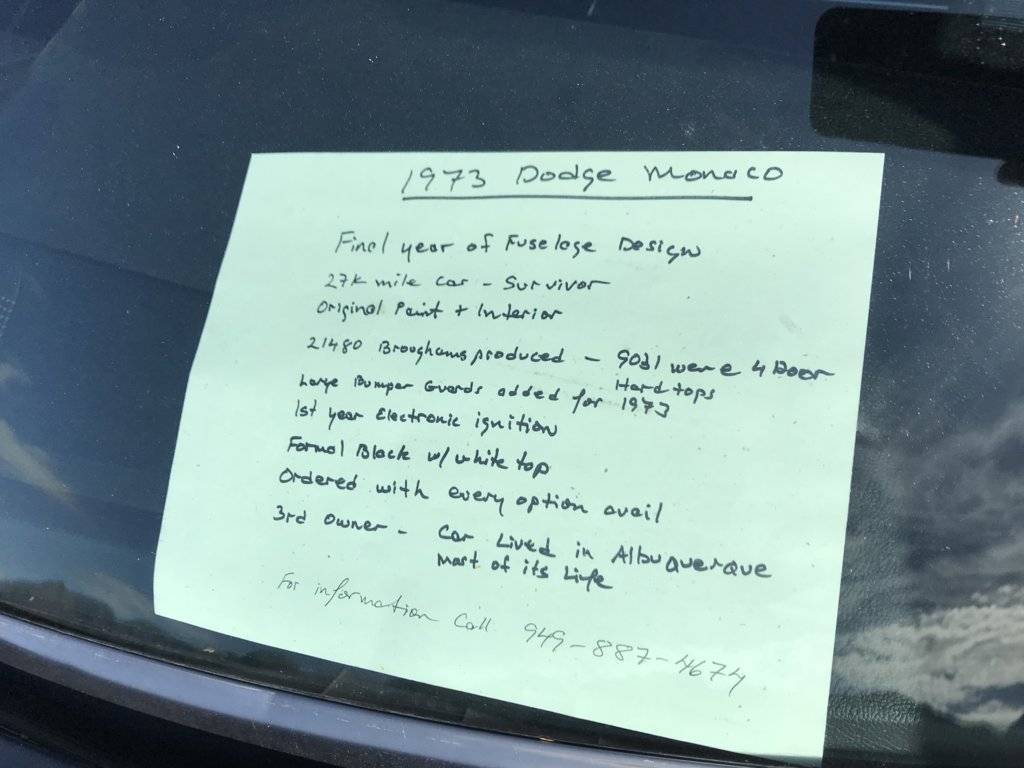 1973 Dodge Monaco
Final year of Fuselage Design
27k mile car - Survivor
Original Paint + Interior
21480 Broughams produced - 9031 were 4 Door
Hard tops
Large Bumper Guards added for 1973
1st year Electronic ignition
Formal Black w/ white top
Ordered with every option avail
3rd Owner - Car Lived in Albuquerque
most of its Life
For information Call 949-887-4674